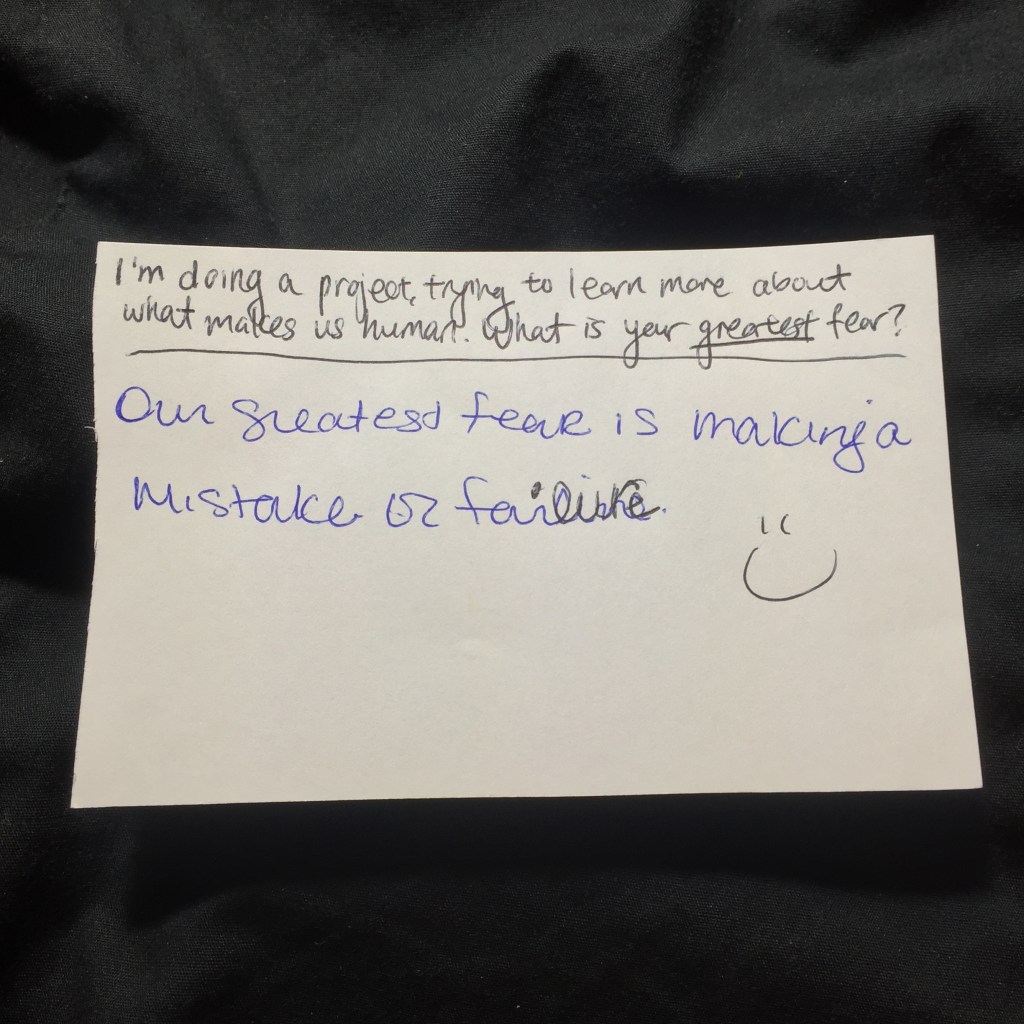 I'm doing a project, trying to learn more about
what makes us human. What is your greatest fear?
Our greatest fear is making a
mistake or failure.